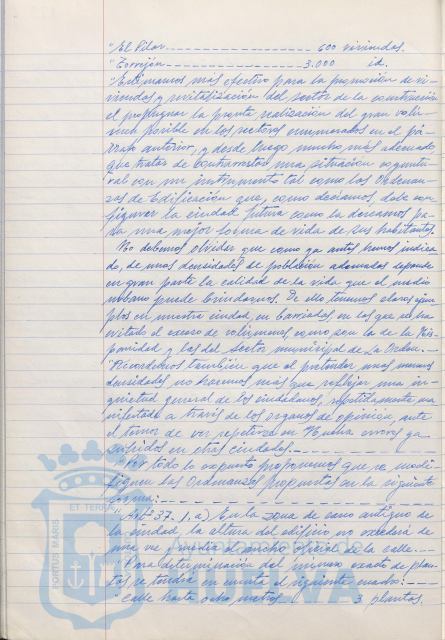 "El Pilar ---------- 600 viviendas.
"Torrejón ---------- 3.000 id.
"Estimamos más efectivo para la promoción de vi-
viendas y revitalización del sector de la construcción
el propugnar la pronta realización del gran volu-
men posible en los sectores enumerados en el pá-
rrafo anterior, y desde luego mucho más adecuado
que tratar de contrarrestar una situación coyuntu-
ral con un instrumento tal como las Ordenan-
zas de Edificación que, como decíamos, debe con-
figurar la ciudad futura como la deseamos pa-
ra una mejor forma de vida de sus habitantes.
No debemos olvidar que como ya antes hemos indica-
do, de unas densidades de población adecuadas depende
en gran parte la calidad de la vida que el medio
urbano puede brindarnos. De ello tenemos claros ejem-
plos en nuestra ciudad, en barriadas en las que se ha
evitado el exceso de volúmenes, como son la de la His-
panidad y las del sector municipal de La Orden.---
"Recordemos también que al pretender unas menores
densidades no hacemos más que reflejar una in-
quietud general de los ciudadanos, repetidamente ma-
nifestada a través de los organos de opinión, ante
el temor de ver repetirse en Huelva errores ya
sufridos en otras ciudades.----------
"Por todo lo expuesto proponemos que se modi-
fiquen las Ordenanzas propuestas en la siguiente
forma:----------
"Artº 37. 1.a) En la zona de casco antiguo de
la ciudad, la altura del edificio no excederá de
una vez y media el ancho oficial de la calle.---
"Para determinación del número exacto de plan-
tas se tendrá en cuenta el siguiente cuadro:---
"Calle hasta ocho metros --- 3 plantas.
PORTUS MARIS
ET TERRAE
HUELVA